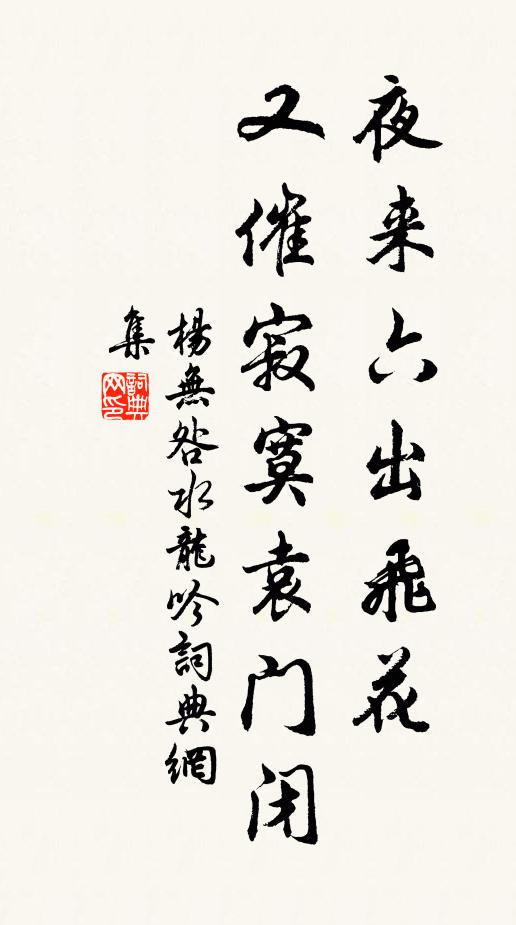 夜来六出飛花
又催寂寞袁门闭
楊無咎水龍吟詞典網
集
詞典
网印